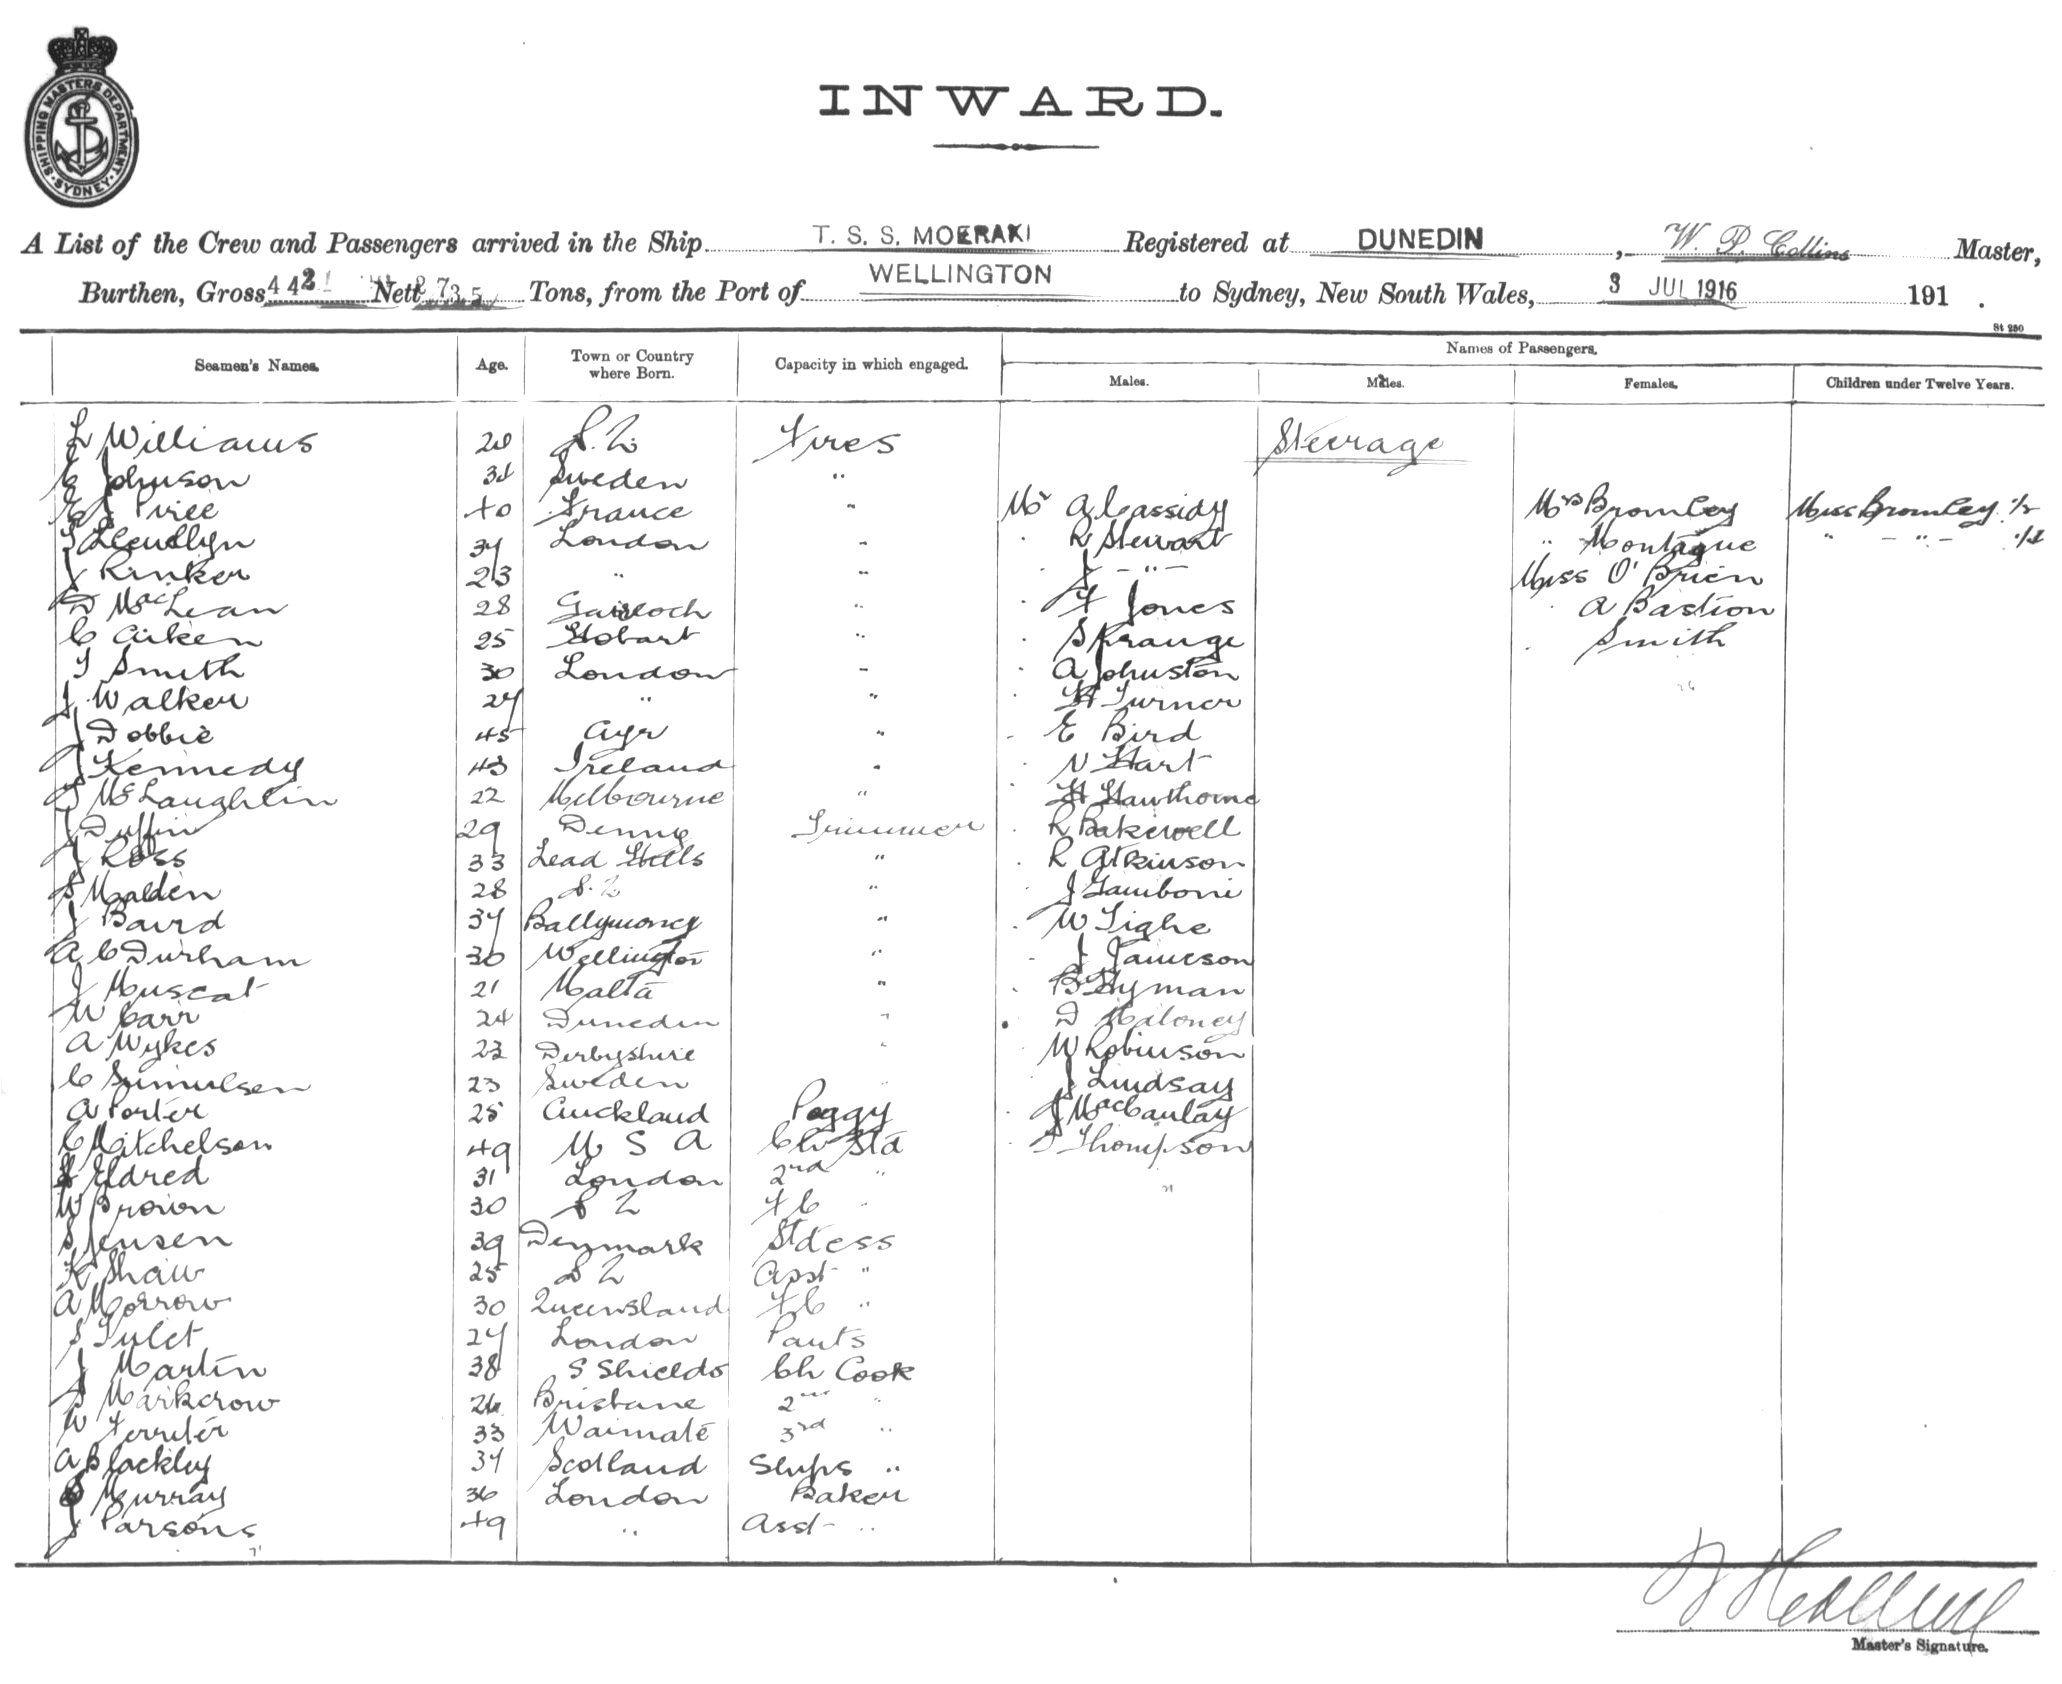 SHIPPING MASTERS DEPARTMENT
SYDNEY
INWARD.
A List of the Crew and Passengers arrived in the Ship T. S. S. MOERAKI Registered at DUNEDIN, W. P. Collins Master,
Burthen, Gross 4421 Nett 2735 Tons, from the Port of WELLINGTON to Sydney, New South Wales, 3 JUL 1916 191 .
St 280
Seamen's Names. Age. Town or Country where Born. Capacity in which engaged. Names of Passengers.
Males. Males. Females. Children under Twelve Years.
L Williams 20 Fires Steerage
C Johnson Sweden "
40 France " Mr A Cassidy Mrs Bromley Miss Bromley
Llewellyn 34 London " R Stewart " Montague " - " -
J Rinker 23 " " J - " - Miss O'Brien
D MacLean 28 Gairloch " F Jones A Bastion
C Aiken 25 Hobart " S Krange Smith
T Smith 30 London " A Johnston
J Walker 24 " " H Turner
J Dobbie 45 Ayr " E Bird
J Kennedy 43 Ireland " N Hart
McLaughlin 22 Melbourne " H Hawthorne
J Duffin 29 Denny Trimmer R Bakewell
J Ross 33 Lead Hills " R Atkinson
S Malden 28 " J Gamboni
J Baird 34 Ballymoney " W Tighe
A C Durham 30 Wellington " J Jameson
J Muscat 21 Malta " B Hyman
W Carr 24 Dunedin " D Maloney
A Wykes 23 Derbyshire " W Robinson
C 23 Sweden J Lindsay
A Porter 25 Auckland Peggy J MacCaulay
C Mitchelson 49 U S A Ch Std Thompson
H Eldred 31 London 2nd "
W Brown 30 F C "
S Jensen 39 Denmark Stdess
K Shaw 25 Asst "
A Morrow 30 Queensland F C "
S Tulet 24 London Pants
J Martin 38 S Shields Ch Cook
Markcrow 26 Brisbane 2nd "
W Ferriter 33 Waimate 3rd "
A Blackley 34 Scotland Ships "
Murray 36 London Baker
J Parsons 49 " Asst "
Master's Signature.